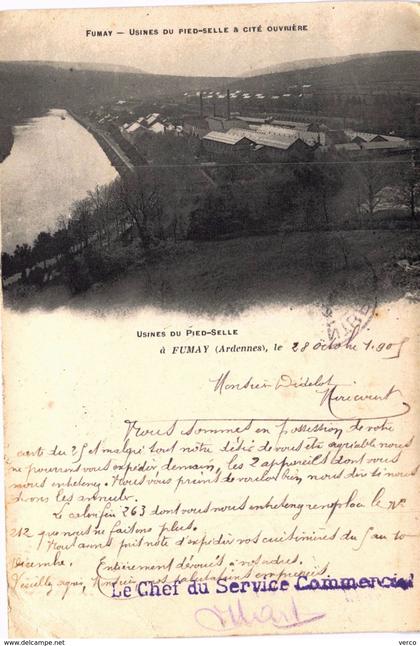 FUMAY — USINES DU PIED-SELLE & CITÉ OUVRIÈRE
USINES DU PIED-SELLE
à FUMAY (Ardennes), le 28 Octobre 1905
Monsieur Didelot
Mirecourt
Nous sommes en possession de votre
carte du 25 et malgré tout notre désir de vous être agréable nous
ne pourrons vous expédier, demain, les 2 appareils dont vous
nous entretenez. Nous vous prions de vouloir bien nous dire si nous
devons les annuler.
Le calorifère 263 dont vous nous entretenez remplace le N°
212 que nous ne faisons plus.
Nous avons pris note d'expédier vos cuisinières du 5 au 10
Décembre. Entièrement dévoués à vos ordres.
Veuillez agréer, Monsieur, nos salutations empressées
Le Chef du Service Commercial